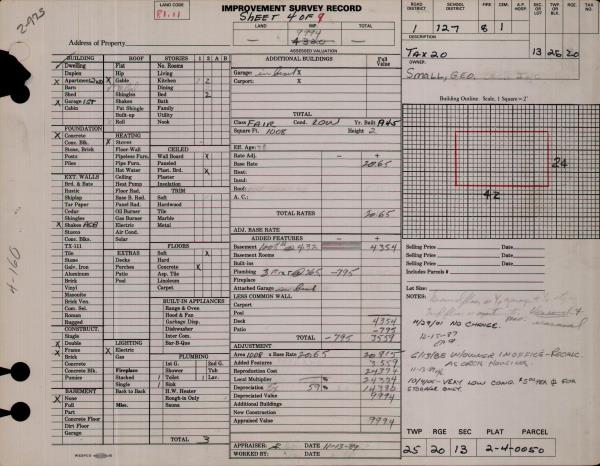 2-925
LAND CODE
81.11
IMPROVEMENT SURVEY RECORD
SHEET 4 OF 9
IMPROVEMENTS
TOTAL
9994
4320
ASSESSED VALUATION
Address of Property
ROAD DISTRICT
SCHOOL DISTRICT
FIRE
CEM.
A.P. HOSP.
SEC OR LOT
TWP OR BLK
RGE.
TAX NO.
1 127 8 1
DESCRIPTION
TAX 20 13 25 20
OWNER
SMALL, GEO.
Building Outline Scale, 1 Square = 2'
24
42
BUILDING
Dwelling
X Apartment 2ND
Duplex
Barn
Shed
X Garage 1ST
Cabin
FOUNDATION
X Concrete
Conc. Blk.
Stone, Brick
Posts
Piles
EXT. WALLS
Brd. & Bats
Rustic
Shiplap
Tar Paper
Cedar
Shingles
X Shakes ACB
Stucco
Conc. Blks.
TX-111
Tile
Stone
Galv. Iron
Aluminum
Brick
Vinyl
Masonite
Brick Ven.
Com. Sel.
Roman
Rugged
CONSTRUCT.
Single
X Double
X Frame
Brick
Concrete
Pumice
BASEMENT
X None
Full
Part
Concrete Floor
Dirt Floor
Garage
ROOF
Flat
Hip
X Gable
Shingles
Shakes
Pat Shingle
Built-up
Roll
HEATING
X Stoves
Floor-Wall
Pipeless Furn.
Pipe Furn.
Hot Water
Ceiling
Heat Pump
Floor Rad.
Base B. Rad.
Panel Rad.
Oil Burner
Gas Burner
Electric
Air Cond.
Solar
EXTRAS
Patio
Deck
Porches
Asp. Tile
Pool
LIGHTING
X Electric
Gas
Fireplace
Stacked
Single
Back to Back
Misc.
STORIES 1 2 A B
No. Rooms
Living
Kitchen 2
Dining
Bed 2
Bath
Family
Utility
Nook
CEILED
Wall Board X
Paneled
Plast. Brd. X
Plaster
Insulation
TRIM
Soft
Hardwood
Tile
Marble
Metal
FLOORS
Soft X
Hard
Concrete X
Tile
Linoleum
Carpet
BUILT-IN APPLIANCES
Range & Oven
Hood & Fan
Garbage Disp.
Dishwasher
Inter Com.
Bar-B-Que
PLUMBING
1st G. 2nd G.
Shower Tub
Toilet Lav.
Sink
H.W. Heater
Rough-in Only
Sauna
TOTAL 3
ADDITIONAL BUILDINGS
Full Value
Garage: X
Carport: X
TOTAL
Class FAIR Cond. LOW Yr. Built A45
Square Ft. 1008 Height 2
Eff. Age:
Rate Adj. - +
Base Rate 20.65
Heat:
Insul:
Roof:
A. C.:
TOTAL RATES 20.65
ADJ. BASE RATE
ADDED FEATURES - +
Basement 1008 @ 4.32 4354
Basement Rooms
Built-ins
Plumbing 3 @ 265 -795
Fireplace
Attached Garage
LESS COMMON WALL
Carport
Pool
Deck 4354
Patio -795
TOTAL -795 3559
ADJUSTMENT
Area 1008 x Base Rate 20.65 20815
Added Features 3559
Reproduction Cost 24374
Local Multiplier 24374
Depreciation 59% 14380
Depreciated Value 9994
Additional Buildings
New Construction
Appraised Value 9994
APPRAISER: DATE 11-13-84
WORKED BY: DATE
Selling Price Date
Selling Price Date
Selling Price Date
Includes Parcels #
Lot Size:
NOTES:
NO CHANGE.
AS ONCE HOUSING
VERY LOW COND.
STORAGE ONLY.
TWP. RGE SEC PLAT PARCEL
25 20 13 2-4-0050
4-160